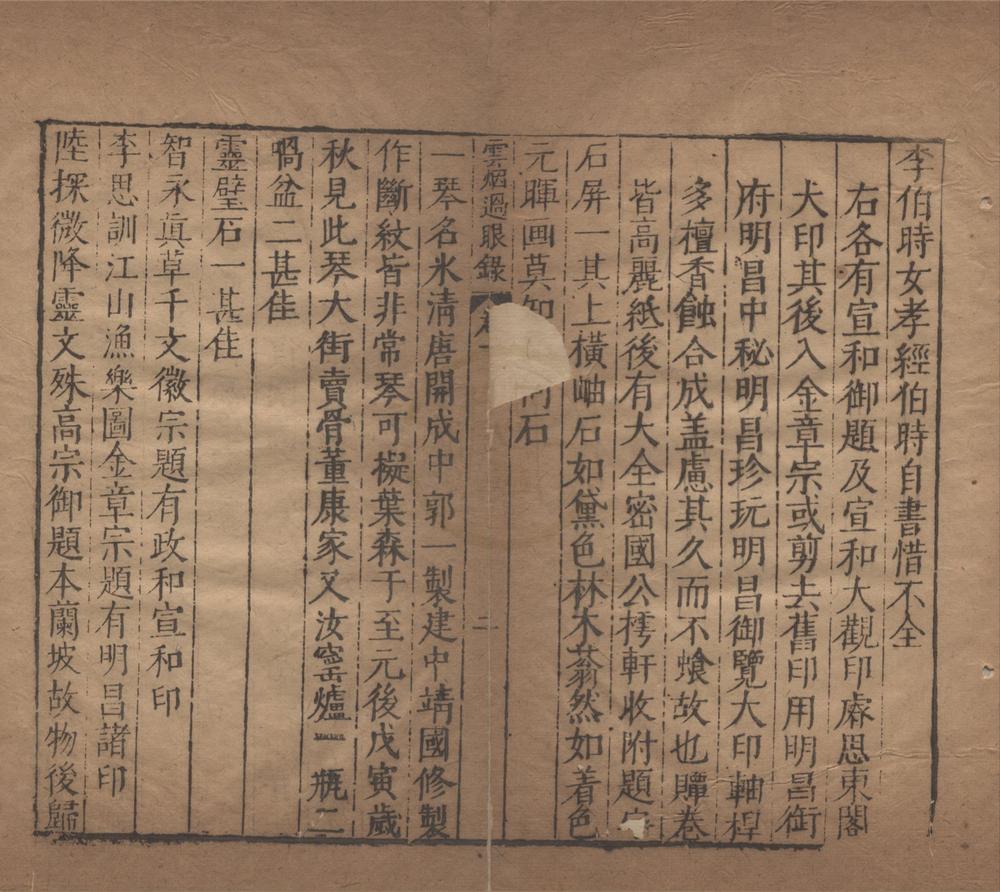 李伯時女孝經伯時自書惜不全
右各有宣和御題及宣和大觀印睿思東閣
大印其後入金章宗或剪去舊印用明昌御
府明昌中秘明昌珍玩明昌御覽大印軸桿
多檀香蝕合成盖慮其久而不飧故也贉卷
皆高麗紙後有大全密國公樗軒收附題
石屏一其上橫岫石如黛色林木蓊然如着色
元暉画莫知 何石
雲烟過眼錄 卷一 二
一琴名氷淸唐開成中郭一製建中靖國修製
作斷紋皆非常琴可擬葉森于至元後戊寅歲
秋見此琴大街賣骨董康家又汝窰爐二瓶二
喎盆二甚佳
靈璧石一甚佳
智永眞草千文徽宗題有政和宣和印
李思訓江山漁樂圖金章宗題有明昌諸印
陸探微降靈文殊高宗御題本蘭坡故物後歸